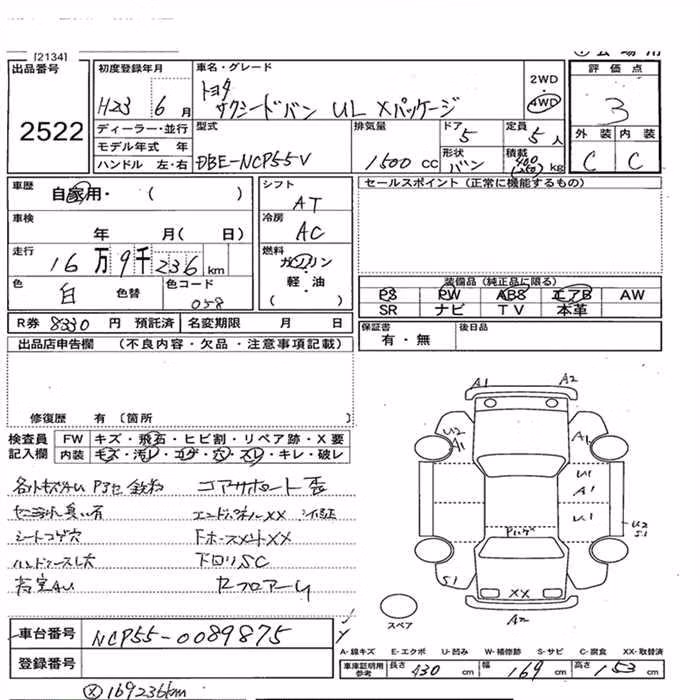 [2134]
出品番号
2522
初度登録年月
H23 6月
車名・グレード
トヨタ
サクシードバン UL Xパッケージ
2WD
・
4WD
評価点
3
外装 内装
C C
ディーラー・並行
モデル年式 年
ハンドル 左・右
型式
DBE-NCP55V
排気量
1500 CC
ドア
5
形状
バン
定員
5 人
積載
400
(250) kg
車歴
自家用・ ( )
車検
年 月( 日)
走行
16万9千236km
色
白 色替
色コード
058
シフト
AT
冷房
AC
燃料
ガソリン
・
軽・油
( )
セールスポイント (正常に機能するもの)
装備品 (純正品に限る)
PS PW ABS エアB AW
SR ナビ TV 本革
R券 8330 円 預託済 名変期限 月 日
保証書
有・無
後日品
出品店申告欄 (不良内容・欠品・注意事項記載)
修復歴 有 〔箇所 〕
検査員
記入欄
FW キズ・飛石・ヒビ割・リペア跡・X要
内装 キズ・汚レ・コゲ・穴・スレ・キレ・破レ
コアサポート
エンドパネルXX
シートコゲ穴
下回りSC
フロアー
A1 A2
U2
A1
A1
U1
A1
U1
U2
S1
S1
XX
A2
スペア
A-線キズ E-エクボ U-凹み W-補修跡 S-サビ C-腐食 XX-取替済
車台番号 NCP55-0089875
登録番号
車庫証明用
参考
長さ 430 cm 幅 169 cm 高さ 153 cm
169236km